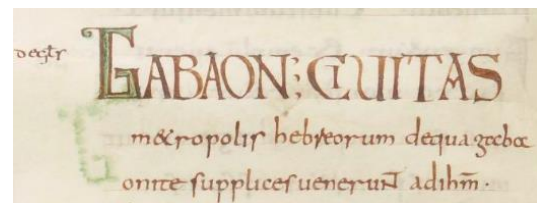 GABAON; CIUITAS
metropolis hebreorum dequa gaba
onite supplices uenerunt adihm̅.